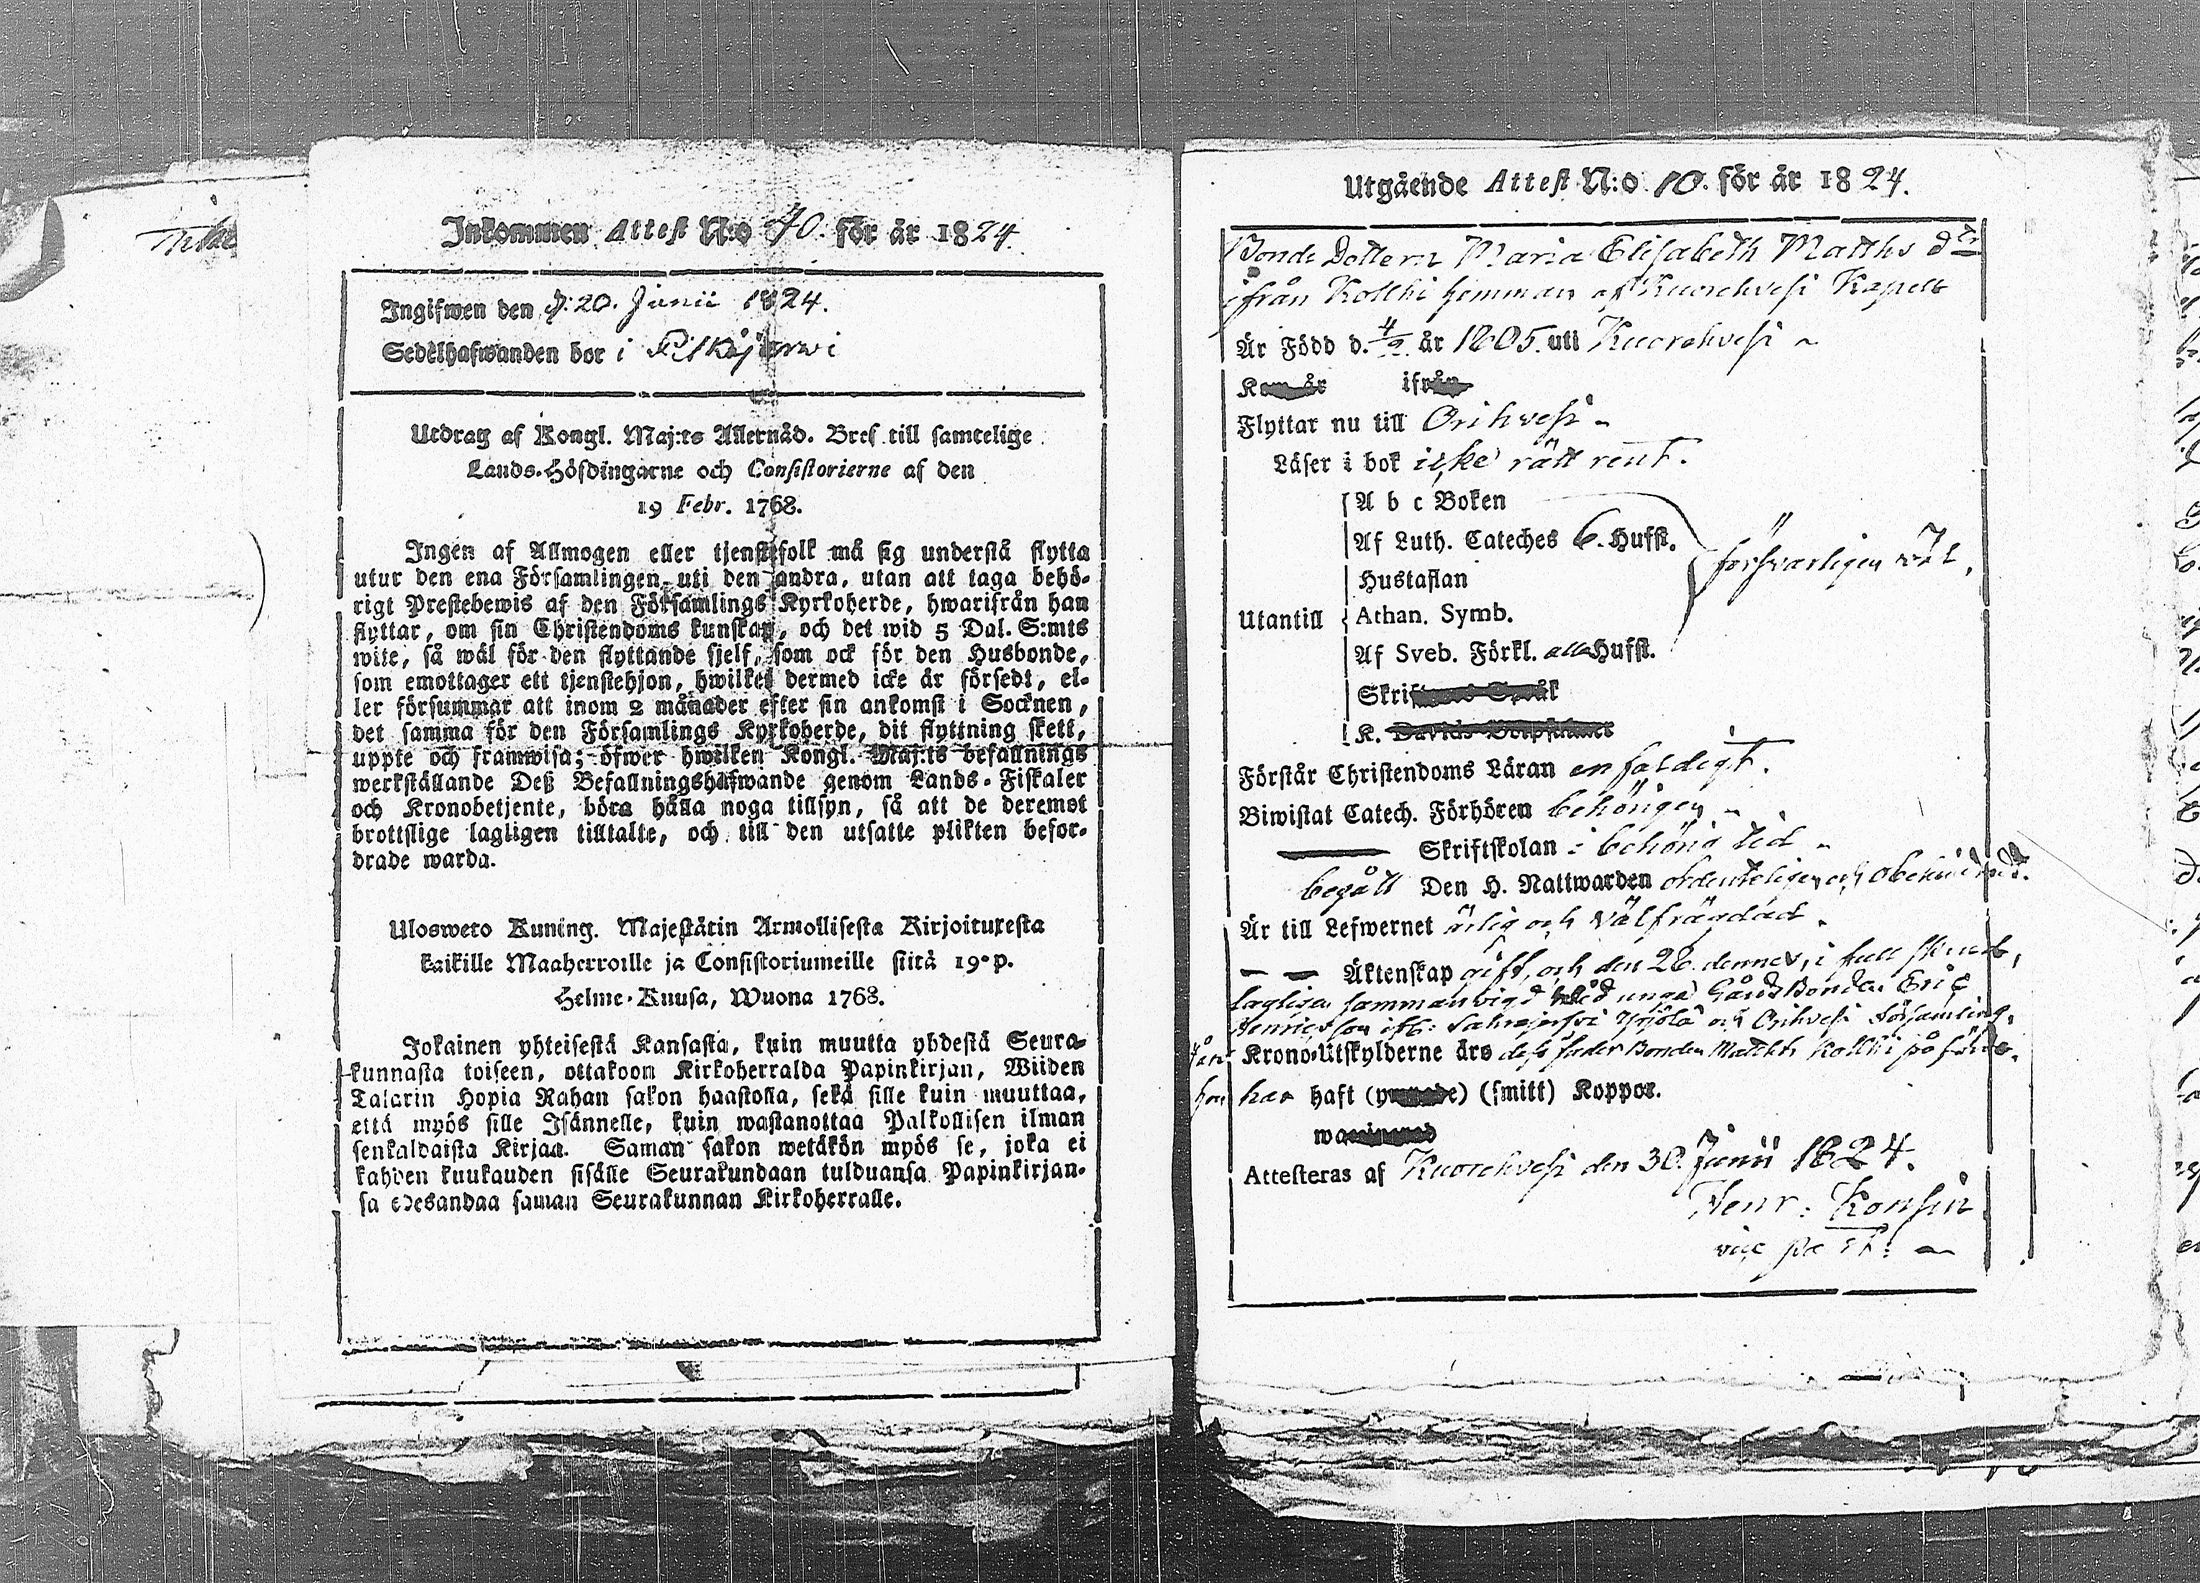 Inkommen Attest N:o 40. för år 1824.
Ingifwen den d: 20. Junii 1824.
Sedelhafwanden bor i Pitkäjerwi
Utdrag af Kongl. Maj:ts Allernåd. Bref till samtelige
Lands-Höfdingarne och Consistorierne af den
19 Febr. 1768.
Ingen af Allmogen eller tjenstefolk må sig understå flytta
utur den ena Församlingen uti den andra, utan att taga behö-
rigt Prestebewis af den Församlings Kyrkoherde, hwarifrån han
flyttar, om sin Christendoms kunskap, och det wid 5 Dal. S:mts
wite, så wäl för den flyttande sjelf, som ock för den Husbonde,
som emottager ett tjenstehjon, hwilket dermed icke är försedt, el-
ler försummar att inom 2 månader efter sin ankomst i Socknen,
det samma för den Församlings Kyrkoherde, dit flyttning skett,
uppte och framwisa; öfwer hwilken Kongl. Maj:ts befallnings
werkställande Deß Befallningshafwande genom Lands-Fiskaler
och Kronobetjente, böra hålla noga tillsyn, så att de deremot
brottslige lagligen tilltalte, och till den utsatte plikten befor-
drade warda.
Uloswero Kuning. Majestätin Armollisesta Kirjoituxesta
kaikille Maaherroille ja Consistoriumeille siitä 19. p.
Helme-Kuusa, Wuona 1768.
Jokainen yhteisestä Kansasta, kuin muutta yhdestä Seura-
kunnasta toiseen, ottakoon Kirkoherralda Papinkirjan, Wiiden
Talarin Hopia Rahan sakon haastolla, sekä sille kuin muuttaa,
että myös sille Isännelle, kuin wastanottaa Palkollisen ilman
senkaldaista Kirjaa. Saman sakon wetäkön myös se, joka ei
kahden kuukauden sisälle Seurakundaan tulduansa Papinkirjan-
sa edesandaa saman Seurakunnan Kirkoherralle.
Utgående Attest N:o 10. för år 1824.
Bonde Dottern Maria Elisabeth Matths dr
ifrån Kollki hemman af Kuorehvesi Kapell
Är Född d. 4/2 år 1805. uti Kuorehvesi
Kom år ifrån
Flyttar nu till Orihvesi
Läser i bok icke rätt rent.
A b c Boken
Af Luth. Cateches 6. Hufst.
Hustaflan
försvarligen väl,
Utantill Athan. Symb.
Af Sveb. Förkl. alla Hufst.
Skriftenes Språk
K. Davids
Förstår Christendoms Läran enfaldigt.
Biwistat Catech. Förhören behörigen
Skriftskolan i behörig tid
begått Den H. Nattwarden ordenteligen och obehindrad.
Är till Lefwernet ärlig och välfrägdad.
Äktenskap gift, och den 26. dennes,
lagligen sammanvigd med unga Gårds Bonden Eric
Henricsson och Orihvesi Församling.
Krono-Utskylderne äro dess fader Bonden Matths Kollki på förd.
hon har haft (ymnade) (smitt) Koppor.
Attesteras af Kuorehvesi den 30. Junii 1824.
Henr. Konsin
vice past: